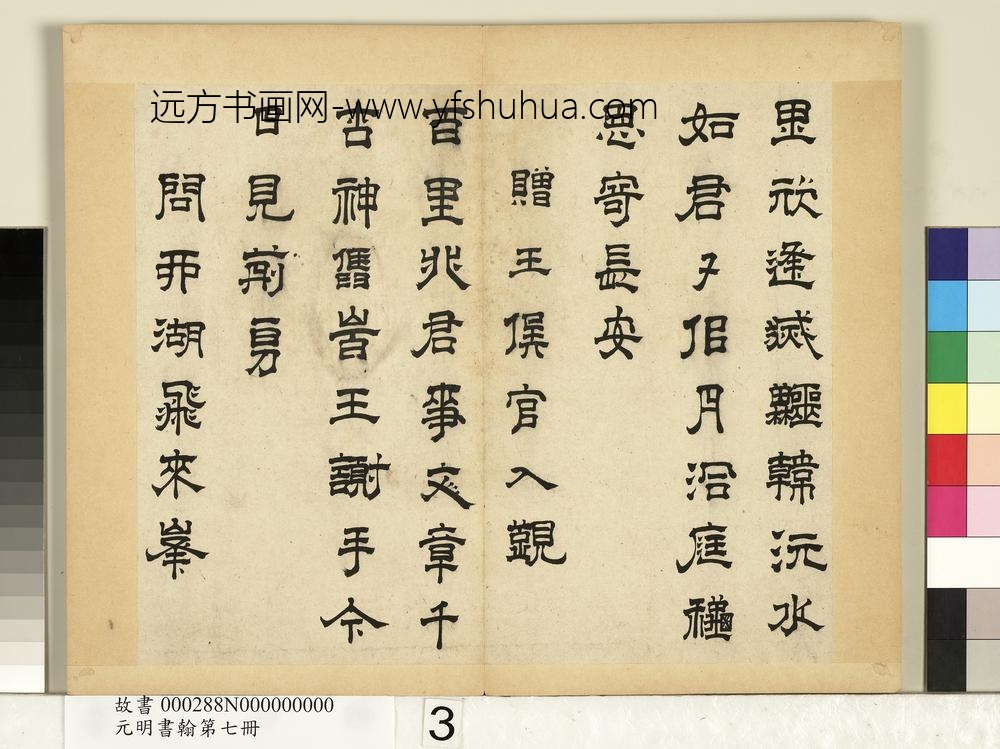 远方书画网-www.yfshuhua.com
里逢韓沅水
如君月庭
思寄長安
贈王侯官入覲
百里君事文章千
古神王謝手今
日見
問湖飛來峯
故書 000288N000000000
元明書翰第七冊
3